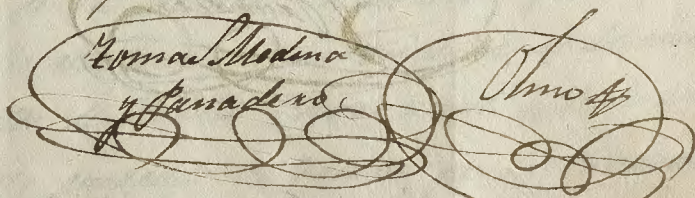 Tomas Medina
y Panadero.
Olmo